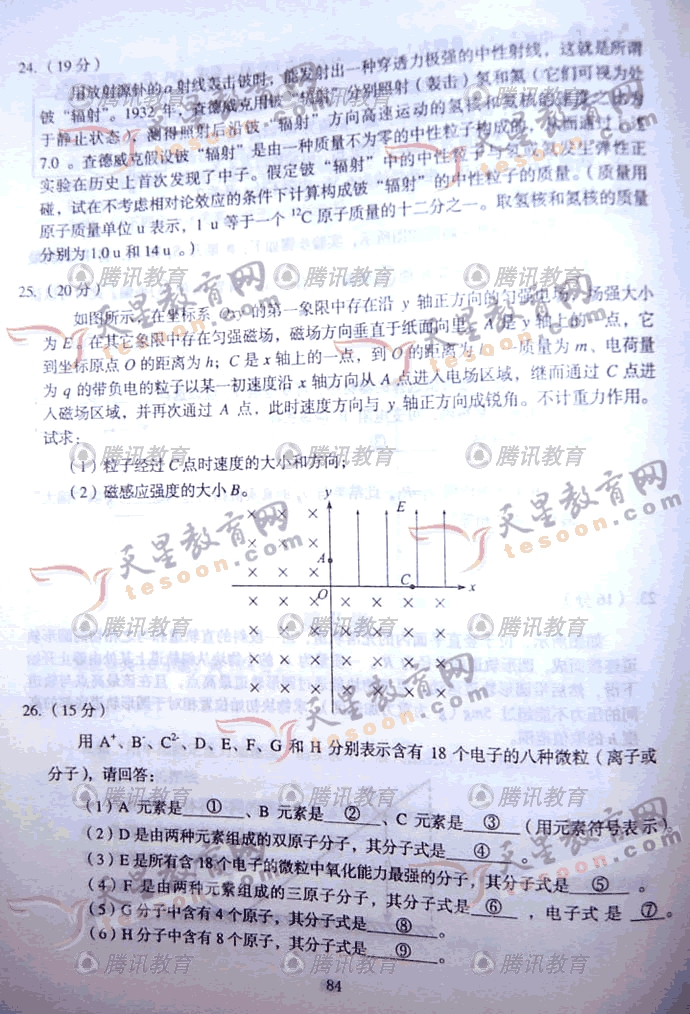 24.（19分）
用放射源钋的α射线轰击铍时，能发射出一种穿透力极强的中性射线，这就是所谓
铍“辐射”。1932年，查德威克用铍“辐射”分别照射（轰击）氢和氮（它们可视为处
于静止状态），测得照射后沿铍“辐射”方向高速运动的氢核和氮核的 之比为
7.0。查德威克假设铍“辐射”是由一种质量不为零的中性粒子构成的， 而通过
实验在历史上首次发现了中子。假定铍“辐射”中的中性粒子与 氢或氮发生弹性正
碰，试在不考虑相对论效应的条件下计算构成铍“辐射”的中性粒子的质量。（质量用
原子质量单位u表示，1 u等于一个¹²C原子质量的十二分之一。取氢核和氮核的质量
分别为1.0 u和14 u。）
25.（20分）
如图所示，在坐标系Oxy的第一象限中存在沿y轴正方向的匀强电场，场强大小
为E。在其它象限中存在匀强磁场，磁场方向垂直于纸面向里。A是y轴上的一点，它
到坐标原点O的距离为h；C是x轴上的一点，到O的距离为 一质量为m、电荷量
为q的带负电的粒子以某一初速度沿x轴方向从A点进入电场区域，继而通过C点进
入磁场区域，并再次通过A点，此时速度方向与y轴正方向成锐角。不计重力作用。
试求：
（1）粒子经过C点时速度的大小和方向；
（2）磁感应强度的大小B。
y
E
A
O
C
x
26.（15分）
用A⁺、B⁻、C²⁻、D、E、F、G和H分别表示含有18个电子的八种微粒（离子或
分子），请回答：
（1）A元素是 ① 、B元素是 ② 、C元素是 ③ （用元素符号表示）。
（2）D是由两种元素组成的双原子分子，其分子式是 ④ 。
（3）E是所有含18个电子的微粒中氧化能力最强的分子，其分子式是 ⑤ 。
（4）F是由两种元素组成的三原子分子，其分子式是 ⑥ ，电子式是 ⑦ 。
（5）G分子中含有4个原子，其分子式是 ⑧ 。
（6）H分子中含有8个原子，其分子式是 ⑨ 。
84
腾讯教育
天星教育网
tesoon.com